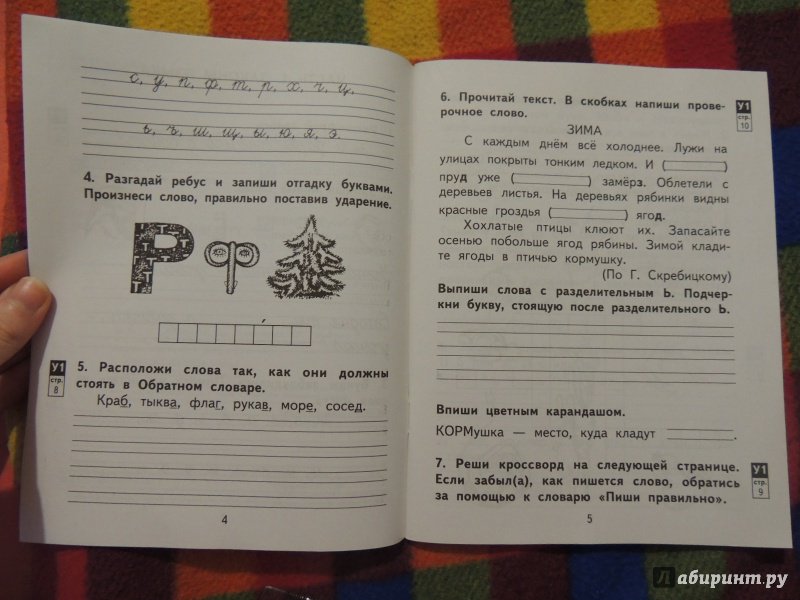 с, у, п, ф, т, р, х, ч, ц,
ь, ъ, ш, щ, ы, ю, я, э.
4. Разгадай ребус и запиши отгадку буквами.
Произнеси слово, правильно поставив ударение.
У1
стр.
8
5. Расположи слова так, как они должны
стоять в Обратном словаре.
Краб, тыква, флаг, рукав, море, сосед.
4
6. Прочитай текст. В скобках напиши прове-
рочное слово.
У1
стр.
10
ЗИМА
С каждым днём всё холоднее. Лужи на
улицах покрыты тонким ледком. И ( )
пруд уже ( ) замёрз. Облетели с
деревьев листья. На деревьях рябинки видны
красные гроздья ( ) ягод.
Хохлатые птицы клюют их. Запасайте
осенью побольше ягод рябины. Зимой клади-
те ягоды в птичью кормушку.
(По Г. Скребицкому)
Выпиши слова с разделительным Ь. Подчер-
кни букву, стоящую после разделительного Ь.
Впиши цветным карандашом.
КОРМушка — место, куда кладут .
7. Реши кроссворд на следующей странице.
Если забыл(а), как пишется слово, обратись
за помощью к словарю «Пиши правильно».
У1
стр.
9
5
Лабиринт.ру